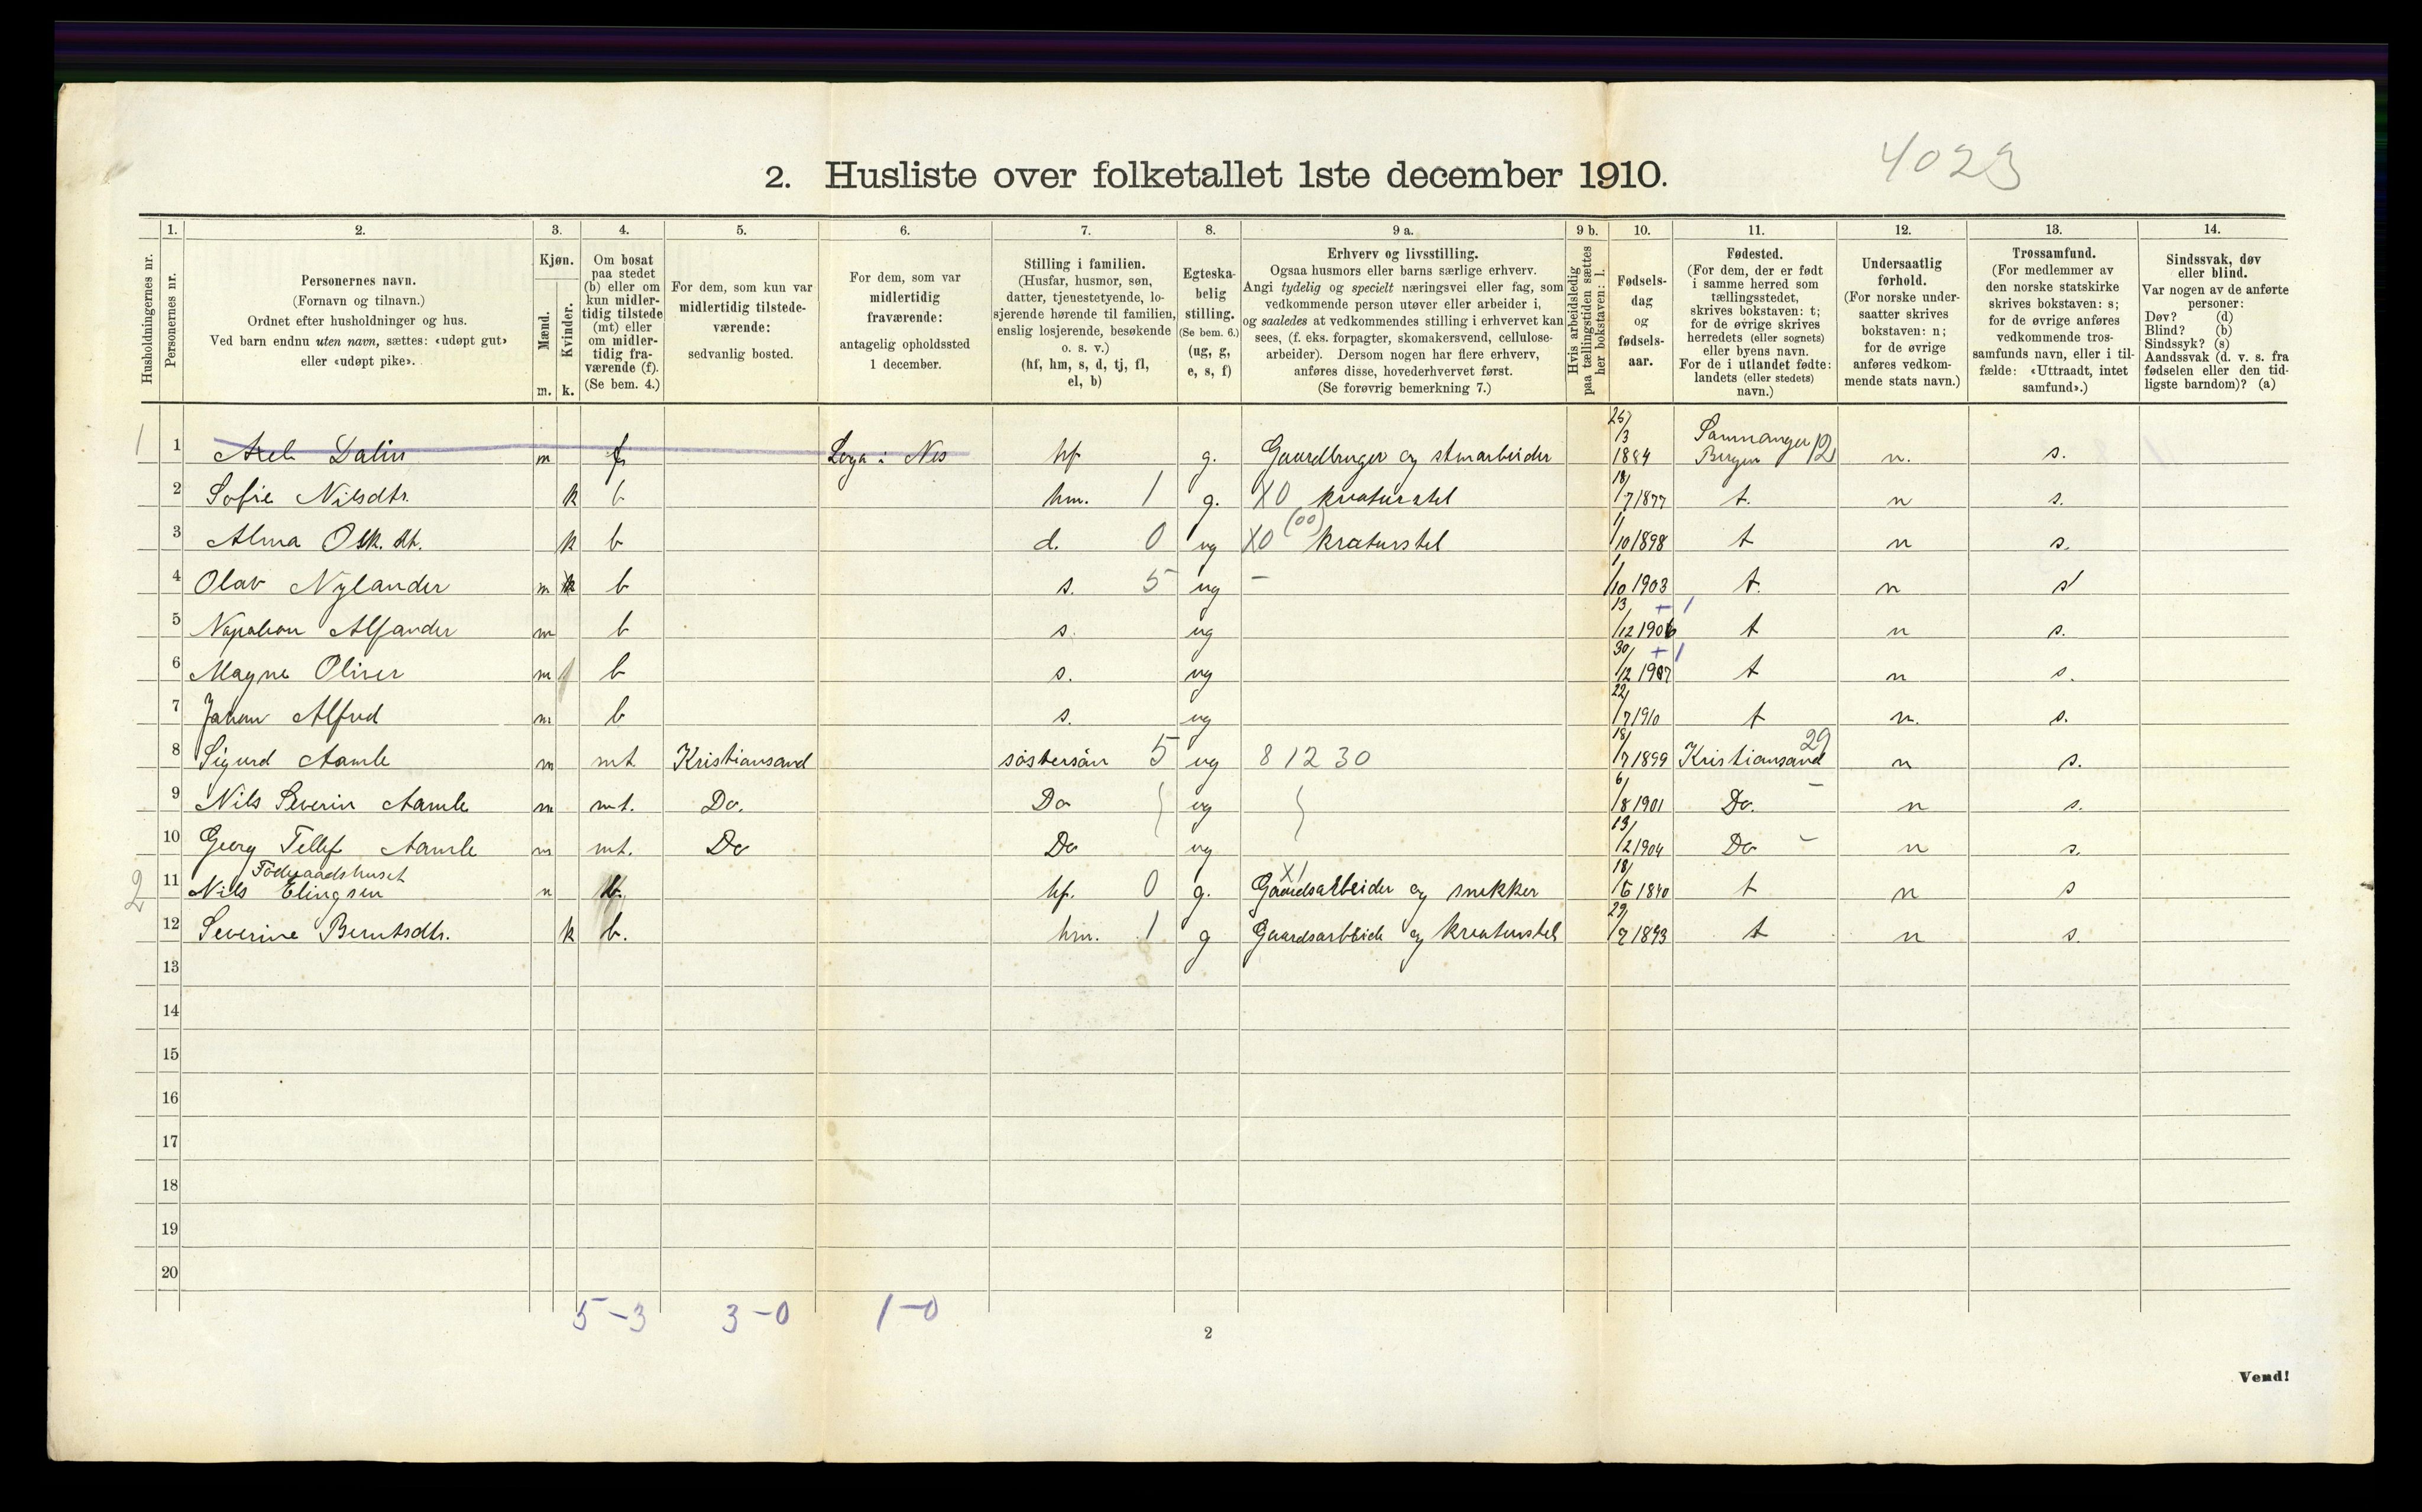 4023
2. Husliste over folketallet 1ste december 1910.
Husholdningernes nr.
1. Personernes nr.
2. Personernes navn.
(Fornavn og tilnavn.)
Ordnet efter husholdninger og hus.
Ved barn endnu uten navn, sættes: «udøpt gut»
eller «udøpt pike».
3. Kjøn.
Mænd. m.
Kvinder. k.
4. Om bosat
paa stedet
(b) eller om
kun midler-
tidig tilstede
(mt) eller
om midler-
tidig fra-
værende (f).
(Se bem. 4.)
5. For dem, som kun var
midlertidig tilstede-
værende:
sedvanlig bosted.
6. For dem, som var
midlertidig
fraværende:
antagelig opholdssted
1 december.
7. Stilling i familien.
(Husfar, husmor, søn,
datter, tjenestetyende, lo-
sjerende hørende til familien,
enslig losjerende, besøkende
o. s. v.)
(hf, hm, s, d, tj, fl,
el, b)
8. Egteska-
belig
stilling.
(Se bem. 6.)
(ug, g,
e, s, f)
9 a. Erhverv og livsstilling.
Ogsaa husmors eller barns særlige erhverv.
Angi tydelig og specielt næringsvei eller fag, som
vedkommende person utøver eller arbeider i,
og saaledes at vedkommendes stilling i erhvervet kan
sees, (f. eks. forpagter, skomakersvend, cellulose-
arbeider). Dersom nogen har flere erhverv,
anføres disse, hovederhvervet først.
(Se forøvrig bemerkning 7.)
9 b. Hvis arbeidsledig
paa tællingstiden sættes
her bokstaven: l.
10. Fødsels-
dag
og
fødsels-
aar.
11. Fødested.
(For dem, der er født
i samme herred som
tællingsstedet,
skrives bokstaven: t;
for de øvrige skrives
herredets (eller sognets)
eller byens navn.
For de i utlandet fødte:
landets (eller stedets)
navn.)
12. Undersaatlig
forhold.
(For norske under-
saatter skrives
bokstaven: n;
for de øvrige
anføres vedkom-
mende stats navn.)
13. Trossamfund.
(For medlemmer av
den norske statskirke
skrives bokstaven: s;
for de øvrige anføres
vedkommende tros-
samfunds navn, eller i til-
fælde: «Uttraadt, intet
samfund».)
14. Sindssvak, døv
eller blind.
Var nogen av de anførte
personer:
Døv? (d)
Blind? (b)
Sindssyk? (s)
Aandssvak (d. v. s. fra
fødselen eller den tid-
ligste barndom)? (a)
1 1 Dalin m f i Nes hf g. Gaardbruger og 25/3 1884 Samnanger Bergen 12 n. s.
2 Sofie Nilsdtr. k b hm. 1 g. X0 kreaturstel 18/7 1877 t. n s.
3 Alma Osk. dt. k b d. 0 ug X0 (00) kreaturstel 1/10 1898 t n s.
4 Olav Nylander m b s. 5 ug - 1/10 1903 t. n s
5 Napoleon Alfander m b s. ug 13/12 1906 +1 t n s.
6 Magne Oliver m b s. ug 30/12 1907 +1 t n s.
7 Johan Alfred m b s. ug 22/7 1910 t n. s.
8 Sigurd Aamle m mt Kristiansand søstersøn 5 ug 8 12 30 18/7 1899 Kristiansand 29 n s.
9 Nils Severin Aamle m mt. Do. Do ug 6/8 1901 Do. - n s.
10 Georg Tellef Aamle m mt. Do Do ug 13/2 1904 Do - n s.
Föderaadshuset
2 11 Nils Elingsen m b. hf. 0 g. X1 Gaardsarbeider og snekker 18/5 1840 t n s
12 Severine Berntsdtr. k b. hm. 1 g Gaardsarbeide og kreaturstel t n s.
13
14
15
16
17
18
19
20
5-3 3-0 1-0
2
Vend!